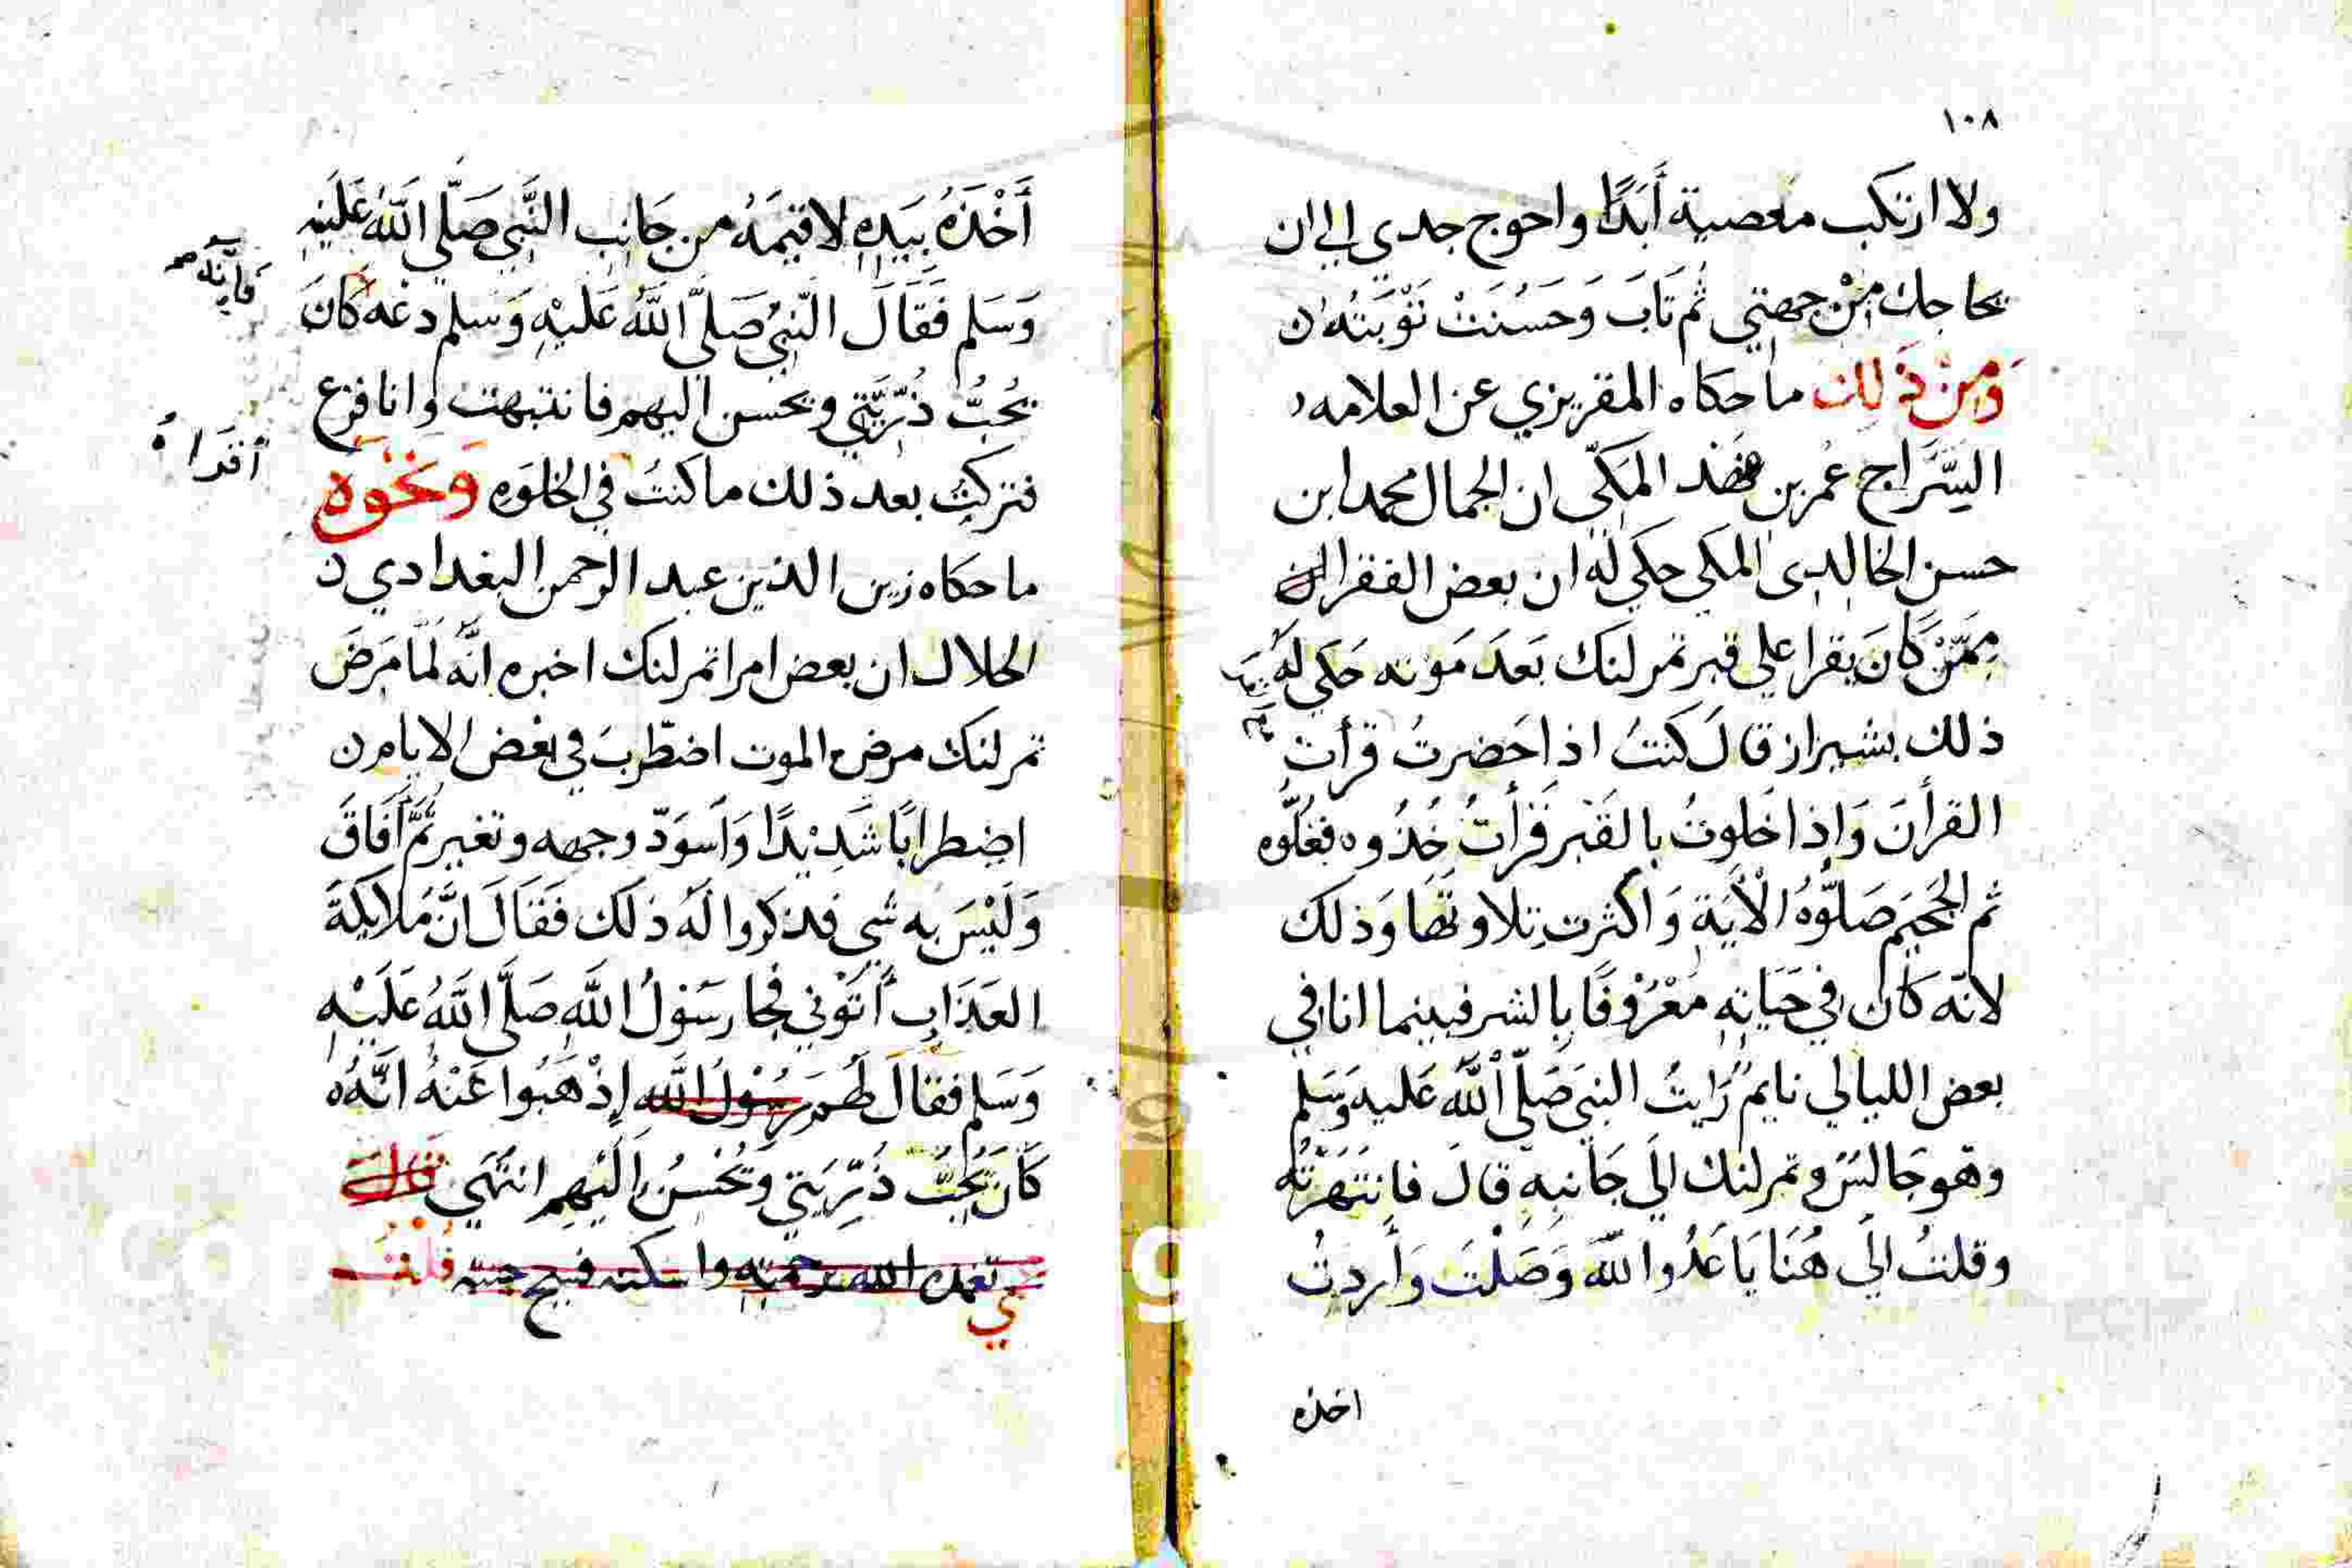 ١٠٨
ولا ارتكب معصية أَبَدًا واحوج جدي الي ان
يحاجك مِنْ جهتي ثم تَابَ وَحَسُنَتْ تَوْبَتُه
وَمِنْ ذَلِكَ ما حكاه المقريزي عن العلامه
السَّرَاج عُمر بن فهد المَكّي ان الجمال محمد ابن
حسن الخالدي المكي حكي لَه ان بعض الفقرا
مِمَّنْ كَانَ يقرا علي قبر تمرلنك بَعدَ مَوته حَكي لَهُ
ذلك بشيراز قالَ كنتُ اذا حَضرتُ قرأت
القرأنَ وَاِذا خَلوتُ بالقَبْر قَرَأتُ خُذُوه فغُلُّوه
ثم الجَحِيمَ صَلّوُهُ الْأيَةِ وَاكثرت تلاوتها وَذلك
لانّه كَان في حَيَاتِهِ مَعْرُوفًا بالشر فبينما انا في
بعض الليالي نايمٌ رَايتُ النبيَ صَلّي اللّهُ عَليه وَسَلم
وهو جَالسٌ وتمرلنك الَي جَانبِه قالَ فانتَهَرْتُه
وقلتُ الَي هُنَا يَا عَدُوا للّه وَصَلْتَ وَأردتُ
اخذه
أَخْذَهُ بِيَدِهِ لاقيمَهُ من جَانِب النَّبي صَلّي اللّهُ عَلَيْهِ
وَسَلم فَقَالَ النّبيُ صَلّي اللّهُ عَلَيْهِ وَسَلم دعْه كَانَ
فَاِنَّه صح
يُحبُّ ذُرِّيَّتِي ويحسن اليهم فانتبهت وانا فزع
فتركتُ بعد ذلك ما كنتُ في الخلوَه وَنَحْوَه
ما حكاه زين الدين عبد الرحمن البغدادي
الخلال ان بعض امرا تمرلنك اخبره انّه لَمّا مَرضَ
تمرلنك مرض الموت اضطربَ في بَعْض الايام
اضِطرابًا شَدِيْدًا وَاَسوَدّ وجهه وتغير ثُمَّ أَفَاقَ
وَلَيْسَ به شي فذكروا لَهُ ذلك فَقَالَ انَّ مَلايكةَ
العَذَابِ أَتَوْني فجا رَسَولُ اللّهِ صَلَّي اللّهُ عَلَيْهِ
وَسَلم فقالَ لَهُم رَسُوْلُ اللّه اِذْهَبُوا عَنْهُ انَّهُ
كَانَ يُحِبُّ ذُرّيَتي وَيُحْسنُ اِلَيْهِم انتهَي
تغمده الله برحمته واسكنه فسيح جنته